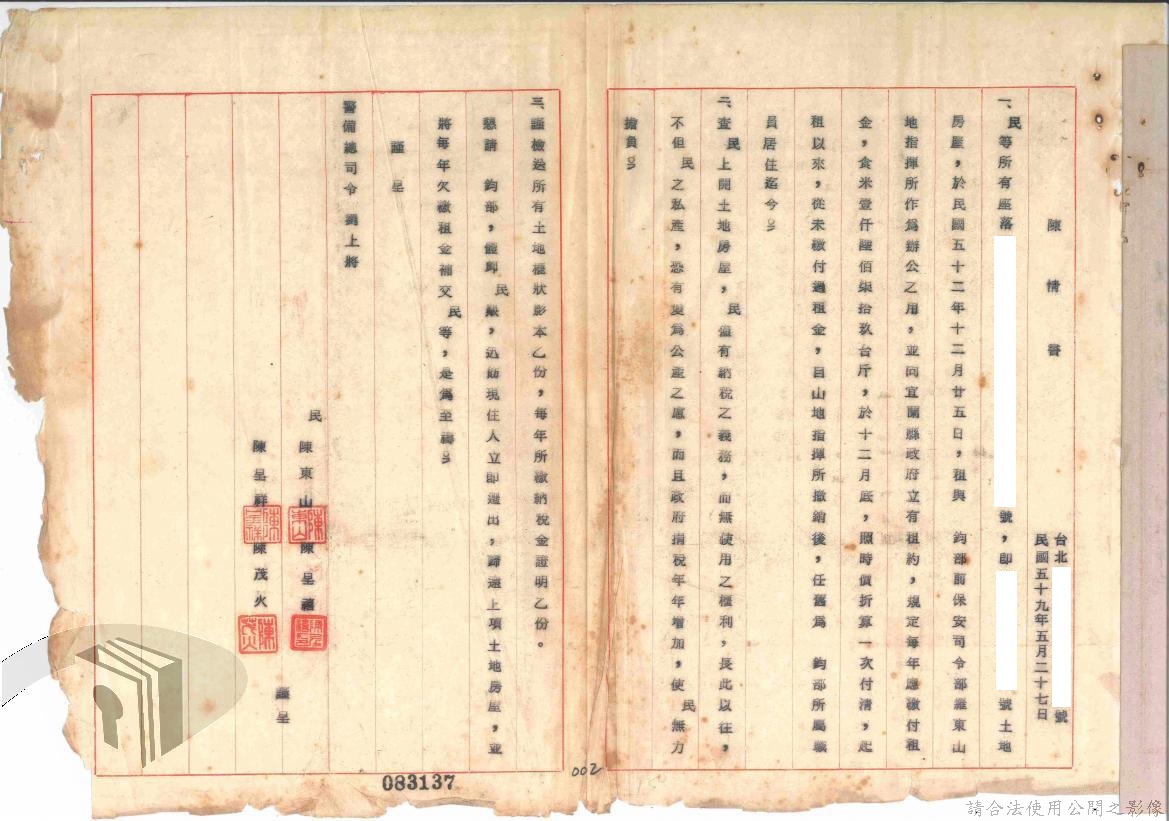 陳情書
台北 號
民國五十九年五月二十七日
一、民等所有座落 號，即 號土地
房屋，於民國五十二年十二月廿五日，租與 鈞部前保安司令部羅東山
地指揮所作為辦公之用，並向宜蘭縣政府立有租約，規定每年應繳付租
金，食米壹仟陸佰柒拾玖台斤，於十二月底，照時價折算一次付清，起
租以來，從未繳付過租金，自山地指揮所撤銷後，任舊為 鈞部所屬職
員居住迄今。
二、查民上開土地房屋，民僅有納稅之義務，而無使用之權利，長此以往，
不但民之私產，恐有變為公產之慮，而且政府捐稅年年增加，使民無力
擔負。
三、謹檢送所有土地權狀影本乙份，每年所繳納稅金證明乙份。
懇請 鈞部，體卹民艱，迅飭現住人立即遷出，歸還上項土地房屋，並
將每年欠繳租金補交民等，是為至禱。
謹呈
警備總司令 劉上將
民 陳東山 陳呈禧
陳呈祥 陳茂火
謹呈
083137
002
請合法使用公開之影像